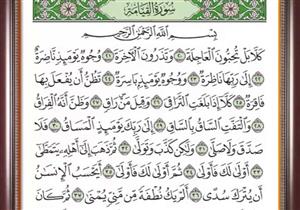 سورة القيامة
بِسْمِ اللَّهِ الرَّحْمَٰنِ الرَّحِيمِ
كَلَّا بَلْ تُحِبُّونَ الْعَاجِلَةَ ٢٠ وَتَذَرُونَ الْآخِرَةَ ٢١ وُجُوهٌ يَوْمَئِذٍ نَّاضِرَةٌ
٢٢ إِلَىٰ رَبِّهَا نَاظِرَةٌ ٢٣ وَوُجُوهٌ يَوْمَئِذٍ بَاسِرَةٌ ٢٤ تَظُنُّ أَن يُفْعَلَ بِهَا
فَاقِرَةٌ ٢٥ كَلَّا إِذَا بَلَغَتِ التَّرَاقِيَ ٢٦ وَقِيلَ مَنْ رَاقٍ ٢٧ وَظَنَّ أَنَّهُ الْفِرَاقُ
٢٨ وَالْتَفَّتِ السَّاقُ بِالسَّاقِ ٢٩ إِلَىٰ رَبِّكَ يَوْمَئِذٍ الْمَسَاقُ ٣٠ فَلَا
صَدَّقَ وَلَا صَلَّىٰ ٣١ وَلَٰكِن كَذَّبَ وَتَوَلَّىٰ ٣٢ ثُمَّ ذَهَبَ إِلَىٰ أَهْلِهِ يَتَمَطَّىٰ
٣٣ أَوْلَىٰ لَكَ فَأَوْلَىٰ ٣٤ ثُمَّ أَوْلَىٰ لَكَ فَأَوْلَىٰ ٣٥ أَيَحْسَبُ الْإِنسَانُ
أَن يُتْرَكَ سُدًى ٣٦ أَلَمْ يَكُ نُطْفَةً مِّن مَّنِيٍّ يُمْنَىٰ ٣٧ ثُمَّ كَانَ